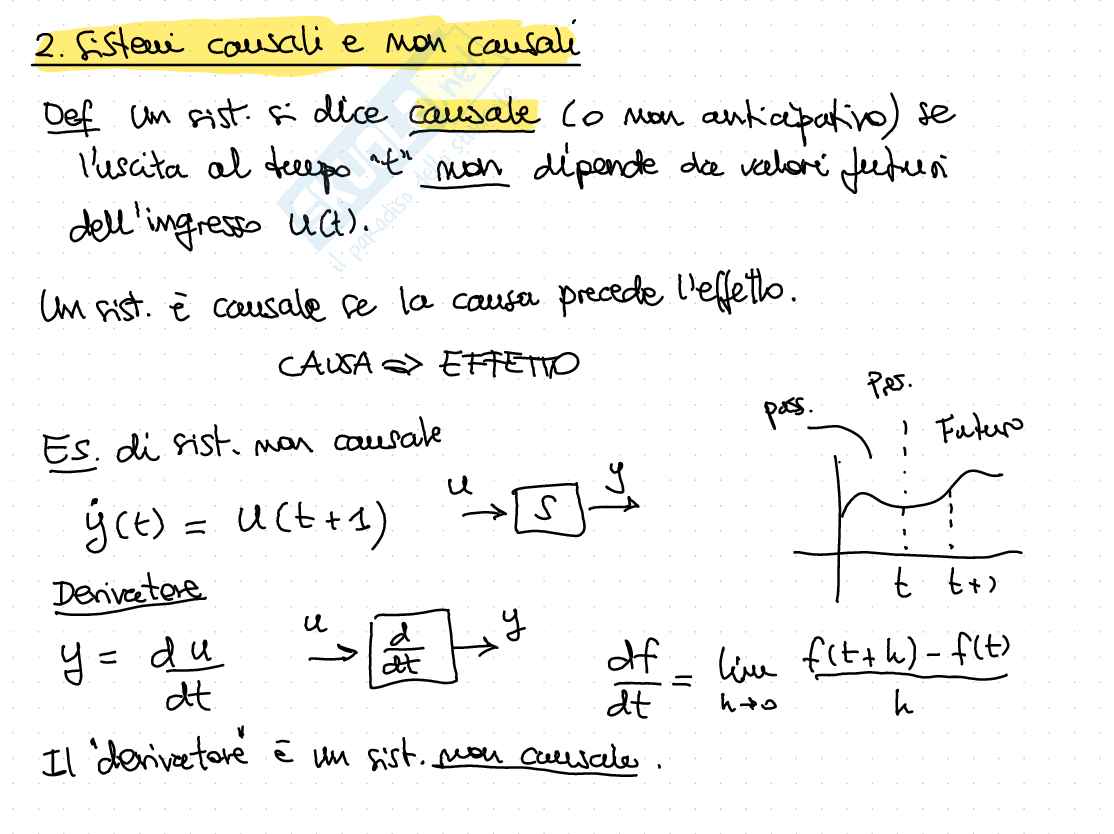 2. Sistemi causali e non causali
Def Un sist. si dice causale (o non anticipativo) se
l'uscita al tempo "t" non dipende da valori futuri
dell'ingresso u(t).
Un sist. è causale se la causa precede l'effetto.
CAUSA => EFFETTO
Es. di sist. non causale
ẏ(t) = u(t+1)
u → S → y
pass. Pres. Futuro
t t+1
Derivatore
y = du/dt
u → d/dt → y
df/dt = lim h→0 f(t+h) - f(t) / h
Il "derivatore" è un sist. non causale.
skuola.net
il paradiso dello studente